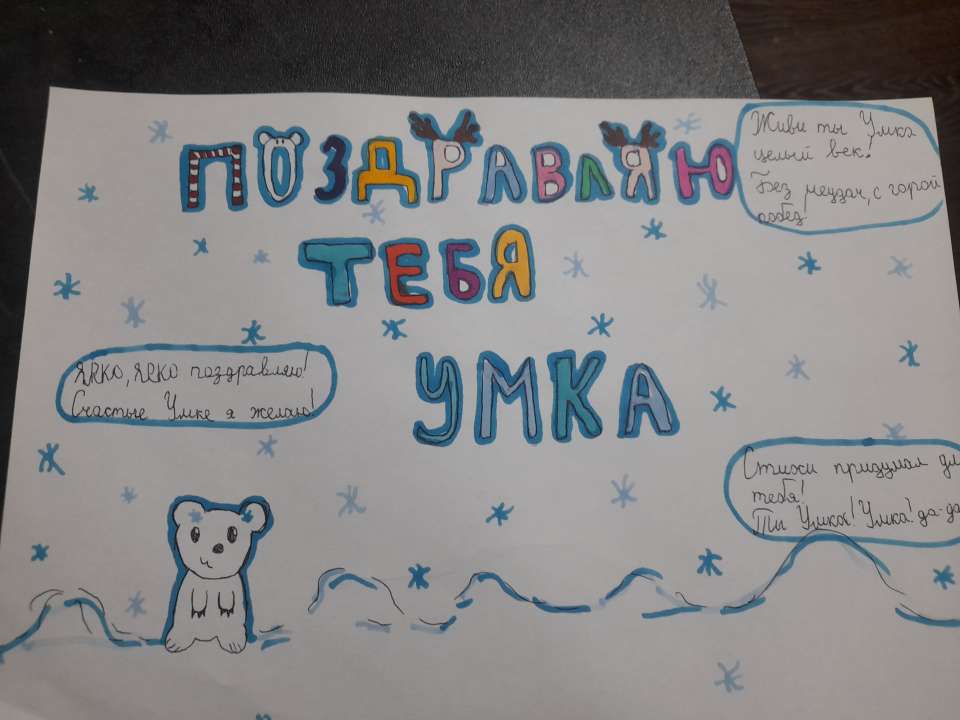 ПОЗДРАВЛЯЮ
ТЕБЯ
УМКА
Живи ты Умка
целый век!
Без неудач, с горой
побед!
Ярко, ярко поздравляю!
Счастье Умке я желаю!
Стихи придумал дл
тебя!
Ты Умка! Умка! да-да